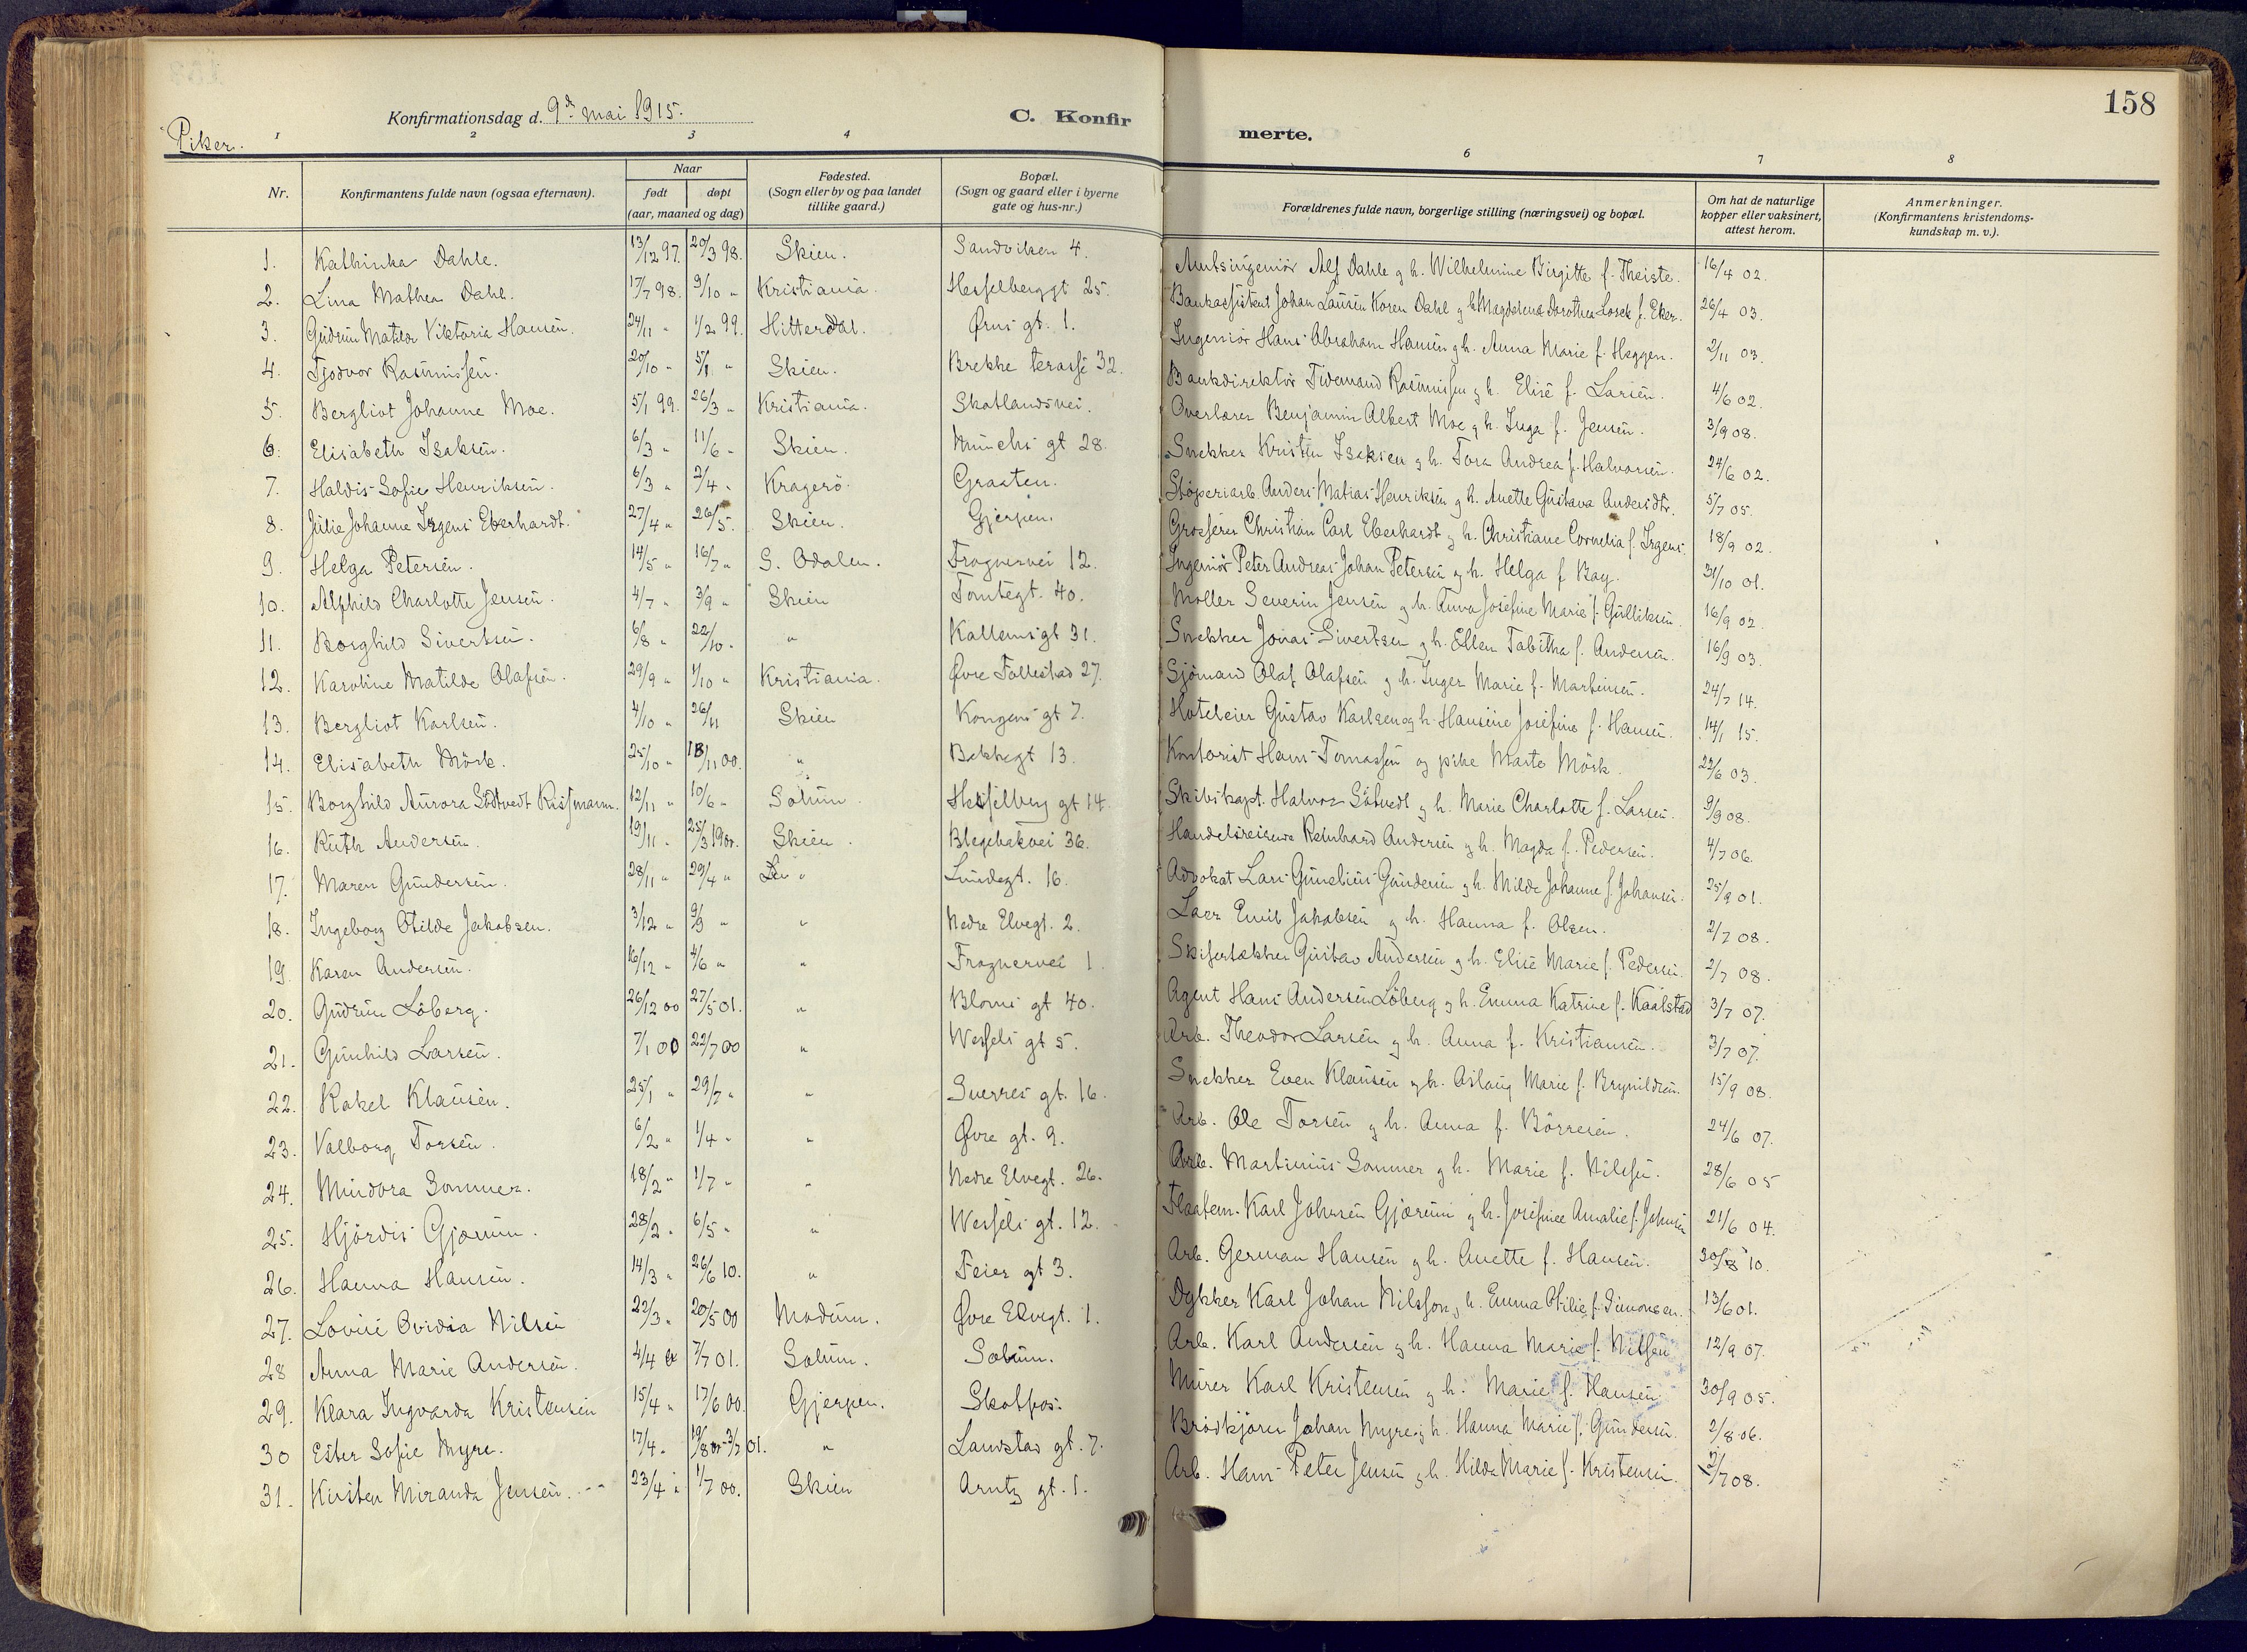 158
Konfirmationsdag d. 9de mai 1915.
C. Konfirmerte.
Piker.
1 2 3 4 6 7 8
Nr. Konfirmantens fulde navn (ogsaa efternavn). Naar født døpt (aar, maaned og dag) Fødested. (Sogn eller by og paa landet tillike gaard.) Bopæl. (Sogn og gaard eller i byerne gate og hus-nr.) Forældrenes fulde navn, borgerlige stilling (næringsvei) og bopæl. Om hat de naturlige kopper eller vaksinert, attest herom. Anmerkninger. (Konfirmantens kristendomskundskap m. v.).
1. Kathinka Dahle. 13/12 97. 20/3 98. Skien. Sandviken 4. Amtsingeniör Alf Dahle og h. Wilhelmine Birgitte f. Theiste. 16/4 02.
2. Lina Mathea Dahl. 17/7 98. 9/10 " Kristiania. Hesselberggt 25. Bankassistent Johan Laurin Koren Dahl og h. Magdalena Dorothea Losek f. Eker. 26/4 03.
3. Gudrun Matilde Viktoria Hansen. 24/11 " 1/2 99. Hitterdal. Ørns gt. 1. Ingeniör Hans Abraham Hansen og h. Anna Marie f. Heggen. 2/11 03.
4. Tjodvor Rasmussen. 20/10 " 5/1 " Skien. Brekke terasse 32. Bankdirektör Tidemand Rasmussen og h. Elise f. Larsen. 4/6 02.
5. Bergliot Johanne Moe. 5/1 99. 26/3 " Kristiania. Skotlandsvei. Overlærer Benjamin Albert Moe og h. Inga f. Jensen. 3/9 08.
6. Elisabeth Isaksen. 6/3 " 11/6 " Skien. Munchs gt 28. Snekker Kristen Isaksen og h. Tora Andrea f. Halvorsen. 24/6 02.
7. Haldis Sofie Henriksen. 6/3 " 2/4 " Kragerö. Graaten. Stöperiarb. Anders Matias Henriksen og h. Anette Gustava Andersdtr. 5/7 05.
8. Julie Johanne Irgens Eberhardt. 27/4 " 26/5. Skien. Gjerpen. Grosserer Christian Carl Eberhardt og h. Christiane Cornelia f. Irgens. 18/9 02.
9. Helga Petersen. 14/5 " 16/7 " S. Odalen. Frognervei 12. Ingeniör Peter Andreas Johan Petersen og h. Helga f. Bay. 31/10 01.
10. Alfhild Charlotte Jensen. 4/7 " 3/9 " Skien Tomtegt. 40. Möller Severin Jensen og h. Anna Josefine Marie f. Gulliksen. 16/9 02.
11. Borghild Sivertsen. 6/8 " 22/10 " " Kallemsgt 31. Snekker Jonas Sivertsen og h. Ellen Tabitha f. Andersen. 16/9 03.
12. Karoline Matilde Olafsen. 29/9 " 1/10 " Kristiania. Øvre Follestad 27. Sjömand Olaf Olafsen og h. Inger Marie f. Martinsen. 24/7 14.
13. Bergliot Karlsen. 4/10 " 26/11 Skien Kongens gt 7. Hoteleier Gustav Karlsen og h. Hansine Josefine f. Hansen. 14/1 15.
14. Elisabeth Mörk. 25/10 " 18/11 00. " Bekkegt 13. Kontorist Hans Tomassen og pike Marte Mörk. 22/6 03.
15. Borghild Aurora Södtvedt Kissmann. 12/11 " 10/6 " Solum. Hesselberg gt 14. Skibskapt. Halvor Sötvedt og h. Marie Charlotte f. Larsen. 9/9 08.
16. Ruth Andersen. 19/11 " 25/3 1900. Skien. Blegebakvei 36. Handelsreisende Reinhard Andersen og h. Magda f. Pedersen. 4/7 06.
17. Maren Gundersen. 28/11 " 29/4 " " Lundegt. 16. Advokat Lars Gunelius Gundersen og h. Milda Johanne f. Johansen. 25/9 01.
18. Ingeborg Otilde Jakobsen. 3/12 " 9/9 " " Nedre Elvegt. 2. Laer Emil Jakobsen og h. Hanna f. Olsen. 2/7 08.
19. Karen Andersen. 16/12 " 4/6 " " Frognervei 1. Skifertækker Gustav Andersen og h. Elise Marie f. Pedersen. 2/7 08.
20. Gudrun Löberg. 26/12 00 27/5 01. " Bloms gt 40. Agent Hans Andersen Löberg og h. Emma Katrine f. Kaalstad 3/7 07.
21. Gunhild Larsen. 7/1 00 22/7 00 " Wessels gt 5. Arb. Theodor Larsen og h. Anna f. Kristiansen. 3/7 07.
22. Rakel Klausen. 25/1 " 29/7 " " Sverres gt. 16. Snekker Even Klausen og h. Aslaug Marie f. Brynildsen. 15/9 08.
23. Valborg Torsen. 6/2 " 1/4 " " Øvre gt. 9. Arb. Ole Torsen og h. Anna f. Börresen. 24/6 07.
24. Mindora Sommer. 18/2 " 1/7 " " Nedre Elvegt. 26. Arb. Martinius Sommer og h. Marie f. Nilsen. 28/6 05
25. Hjördis Gjærum. 28/2 " 6/5 " " Wessels gt. 12. Flaatem. Karl Johnsen Gjærum og h. Josefine Amalie f. Johnsen 21/6 04.
26. Hanna Hansen. 14/3 " 26/6 10. " Feier gt 3. Arb. German Hansen og h. Anette f. Hansen. 30/8 10.
27. Lovise Ovidia Nilsen 22/3 " 20/5 00 Modum. Øvre Elvegt. 1. Dykker Karl Johan Nilsson og h. Emma Otilie f. Simonsen. 13/6 01.
28 Anna Marie Andersen. 4/4 " 7/7 01. Solum. Solum. Arb. Karl Andersen og h. Hanna Marie f. Nilsen 12/9 07.
29. Klara Ingvarda Kristensen 15/4 " 17/6 00. Gjerpen. Skotfos. Murer Karl Kristensen og h. Marie f. Hansen. 30/9 05.
30 Ester Sofie Myre. 17/4 " 19/8 00-3/2 01. " Landstad gt. 7. Brödkjörer Johan Myre og h. Hanna Marie f. Gundersen. 2/8 06.
31. Kirsten Miranda Jensen. 23/4 " 1/7 00. Skien Arntz gt. 1. Arb. Hans Peter Jensen og h. Hilda Marie f. Kristensen. 2/7 08.